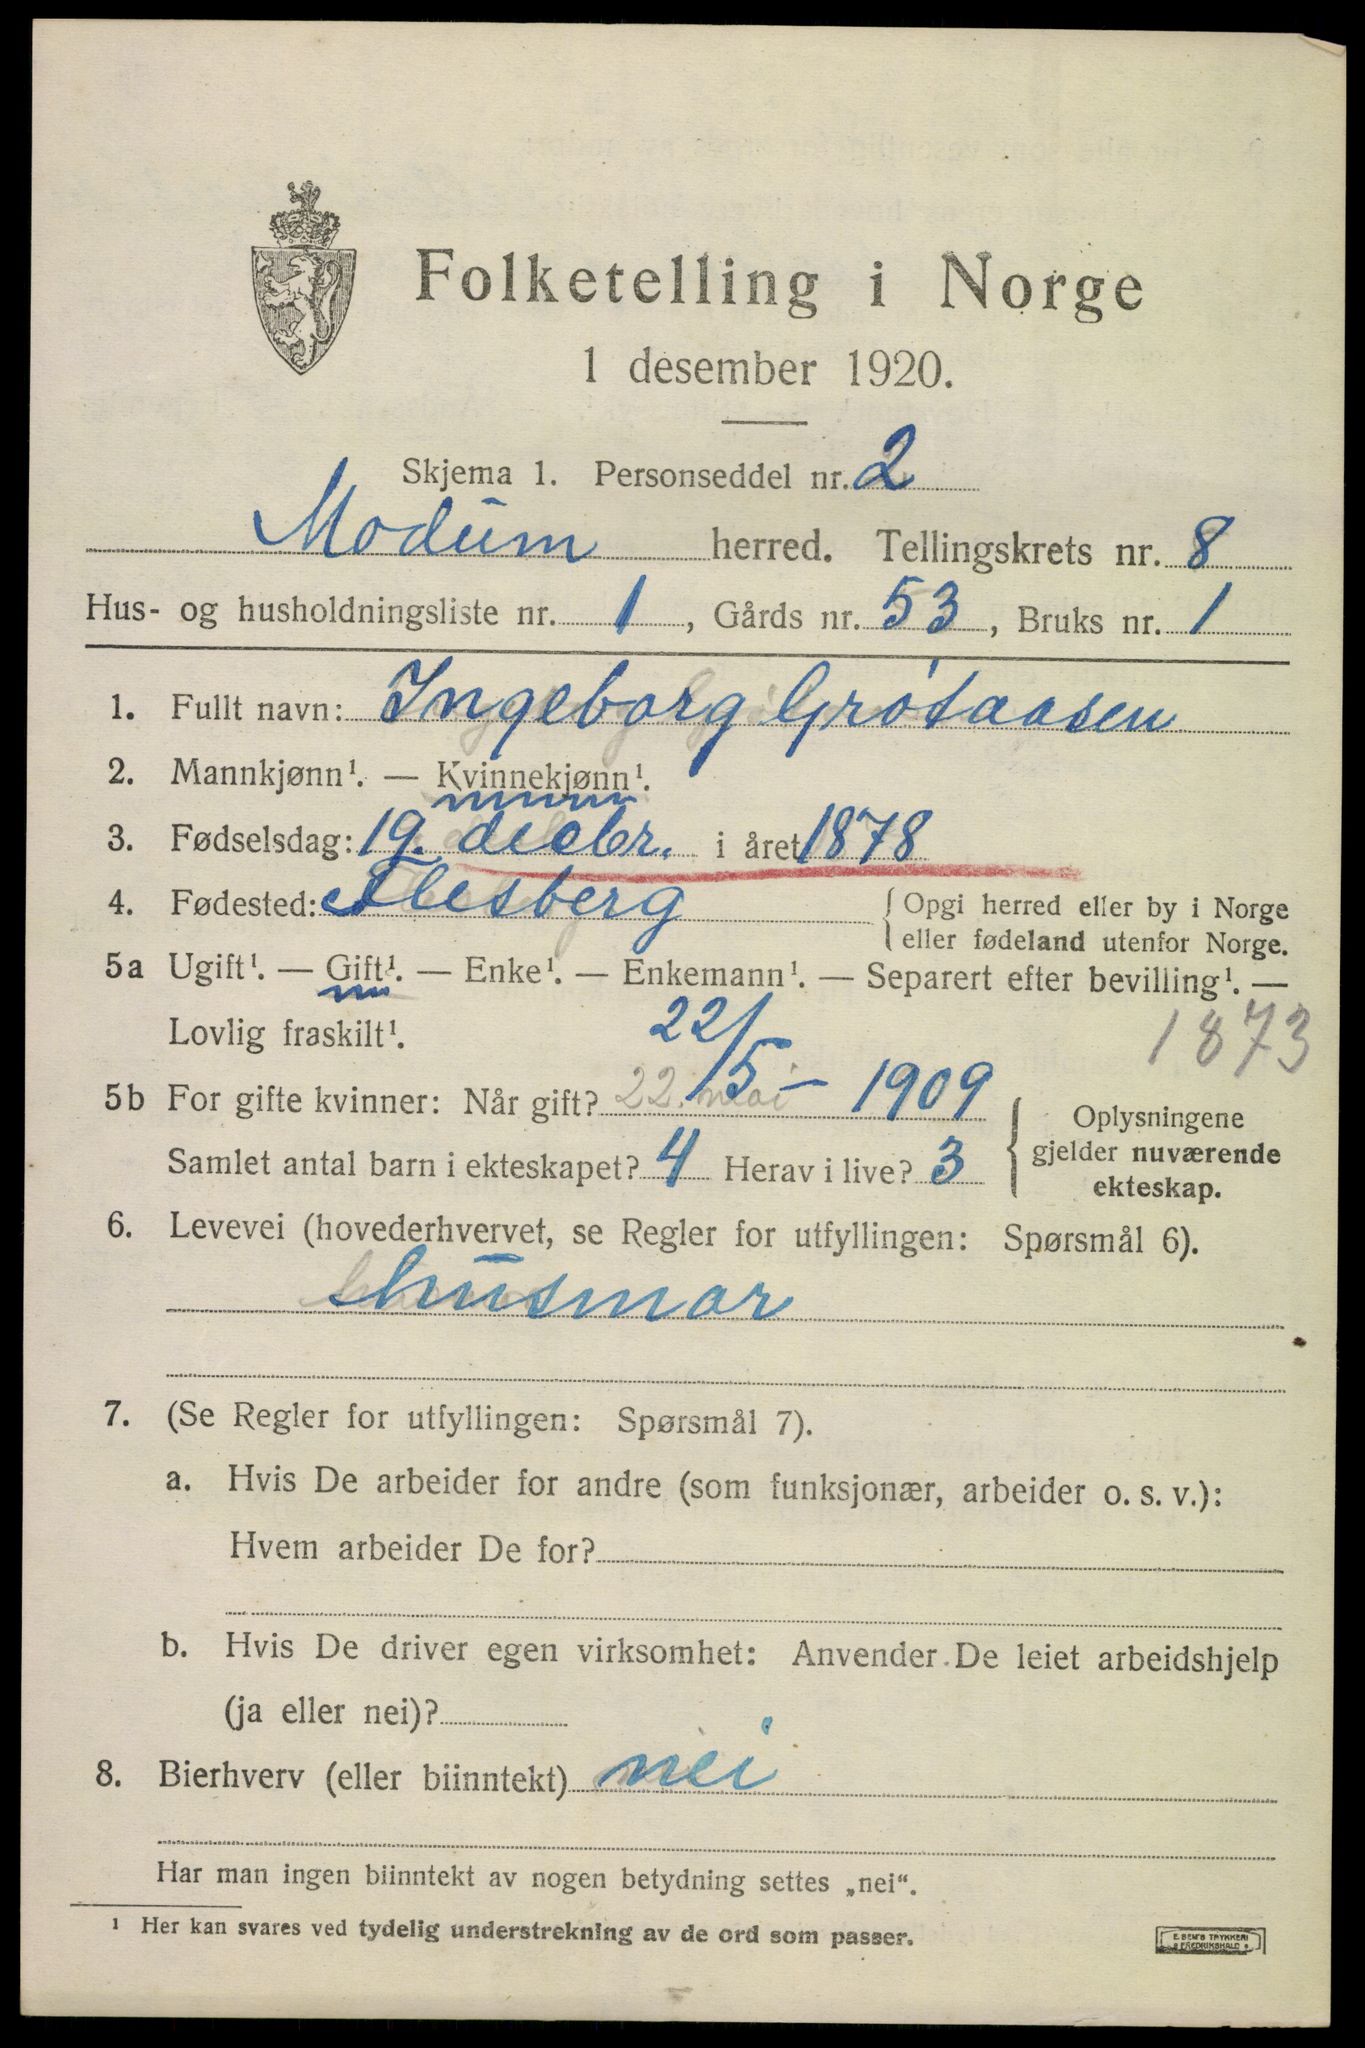 Folketelling i Norge
1 desember 1920.
Skjema 1. Personseddel nr. 2
Modum herred. Tellingskrets nr. 8
Hus- og husholdningsliste nr. 1, Gårds nr. 53, Bruks nr. 1
1. Fullt navn: Ingeborg Grøtaasen
2. Mannkjønn¹. — Kvinnekjønn¹.
3. Fødselsdag: 19. decbr. i året 1878
4. Fødested: Flesberg {Opgi herred eller by i Norge
eller fødeland utenfor Norge.
5a Ugift¹. — Gift¹. — Enke¹. — Enkemann¹. — Separert efter bevilling¹. —
Lovlig fraskilt¹.
1873
5b For gifte kvinner: Når gift? 22. mai 22/5 – 1909
Samlet antal barn i ekteskapet? 4 Herav i live? 3
{Oplysningene
gjelder nuværende
ekteskap.
6. Levevei (hovederhvervet, se Regler for utfyllingen: Spørsmål 6).
husmor
7. (Se Regler for utfyllingen: Spørsmål 7).
a. Hvis De arbeider for andre (som funksjonær, arbeider o. s. v.):
Hvem arbeider De for?
b. Hvis De driver egen virksomhet: Anvender De leiet arbeidshjelp
(ja eller nei)?
8. Bierhverv (eller biinntekt) nei
Har man ingen biinntekt av nogen betydning settes „nei“.
¹ Her kan svares ved tydelig understrekning av de ord som passer.
E SEM'S TRYKKERI
FREDRIKSHALD